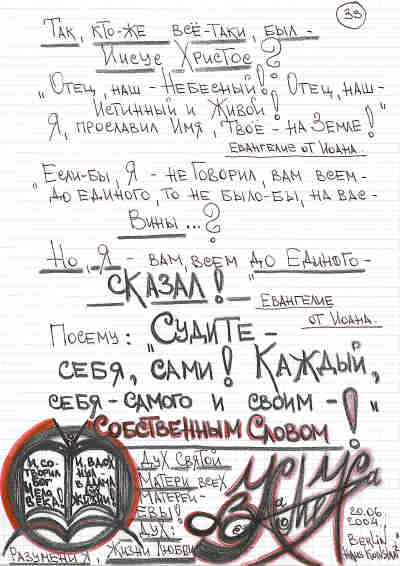 33
Так, кто-же всё-таки, был -
Иисус Христос?
„Отец, наш - Небесный! Отец, наш -
Истинный и Живой!
Я, прославил Имя, Твоё - на Земле!“
Евангелие от Иоана.
„Если-бы, Я - не Говорил, вам всем -
до единого, то не было-бы, на вас -
Вины...?
Но, Я - вам, всем до Единого -
СКАЗАЛ!
Евангелие
от Иоана.
Посему: „Судите -
себя, сами! Каждый,
себя - самого и своим -!“
Собственным Словом
И, со-
творил
Бог
чело
века!
И, вдох
нул -
в Адама
дух
Жизни!
Дух Святой
Матери всех
Матерей -
Евы!
Дух:
Разумения, Жизни Любви
20.06.
2004.
Berlin